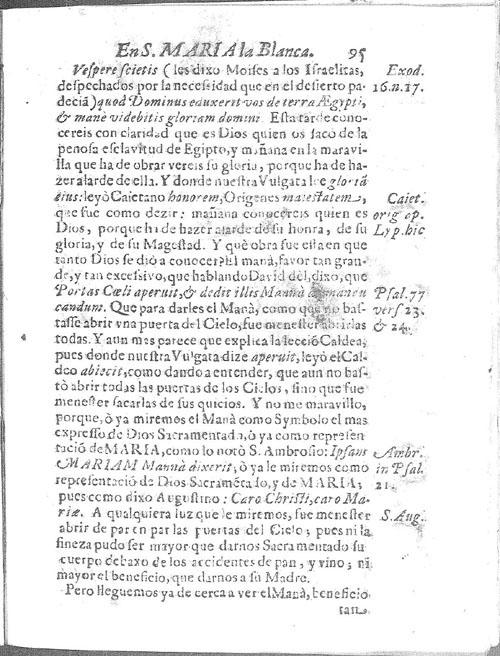 En S. MARIA la Blanca. 95
Vespere scietis (les dixo Moises a los Israelitas, Exod.
despechados por la necessidad que en el desierto pa- 16.n.17.
deciā) quod Dominus eduxerit vos de terra Ægypti,
& manè videbitis gloriam domini. Esta tarde cono-
cereis con claridad que es Dios quien os saco de la
penosa esclavitud de Egipto, y mañana en la maravi-
lla que ha de obrar vereis su gloria, porque ha de ha-
zer alarde de ella. Y donde nuestra Vulgata lee gloriā
eius: leyò Caietano honorem, Origenes maiestatem, Caiet.
que fue como dezir: mañana conocereis quien es orig. op.
Dios, porque ha de hazer alarde de su honra, de su Lyp. hic
gloria, y de su Magestad. Y què obra fue esta en que
tanto Dios se diò a conocer? El manà, favor tan gran-
de, y tan excessivo, que hablando David dèl, dixo, que
Portas Cœli aperuit, & dedit illis Mannà ad mancu Psal. 77
candum. Que para darles el Manà, como que no bas- vers 23.
tasse abrir vna puerta del Cielo, fue menester abrirlas & 24.
todas. Y aun mas parece que explica la lecciō Caldea,
pues donde nuestra Vulgata dize aperuit, leyò el Cal-
deo abiecit, como dando a entender, que aun no bas-
tò abrir todas las puertas de los Cielos, sino que fue
menester sacarlas de sus quicios. Y no me maravillo,
porque, ò ya miremos el Manà como Symbolo el mas
expresso de Dios Sacramentado, ò ya como represen
tació de MARIA, como lo notò S. Ambrosio: Ipsam Ambr.
MARIAM Mannà dixerit, ò ya le miremos como in Psal.
representaciò de Dios Sacramētado, y de MARIA; 21.
pues como dixo Augustino: Caro Christi, caro Ma-
riæ. A qualquiera luz que le miremos, fue menester S. Aug.
abrir de par en par las puertas del Cielo; pues ni la
fineza pudo ser mayor que darnos Sacramentado su
cuerpo debaxo de los accidentes de pan, y vino; ni
mayor el beneficio, que darnos a su Madre.
Pero lleguemos ya de cerca a ver el Manà, beneficio
tan